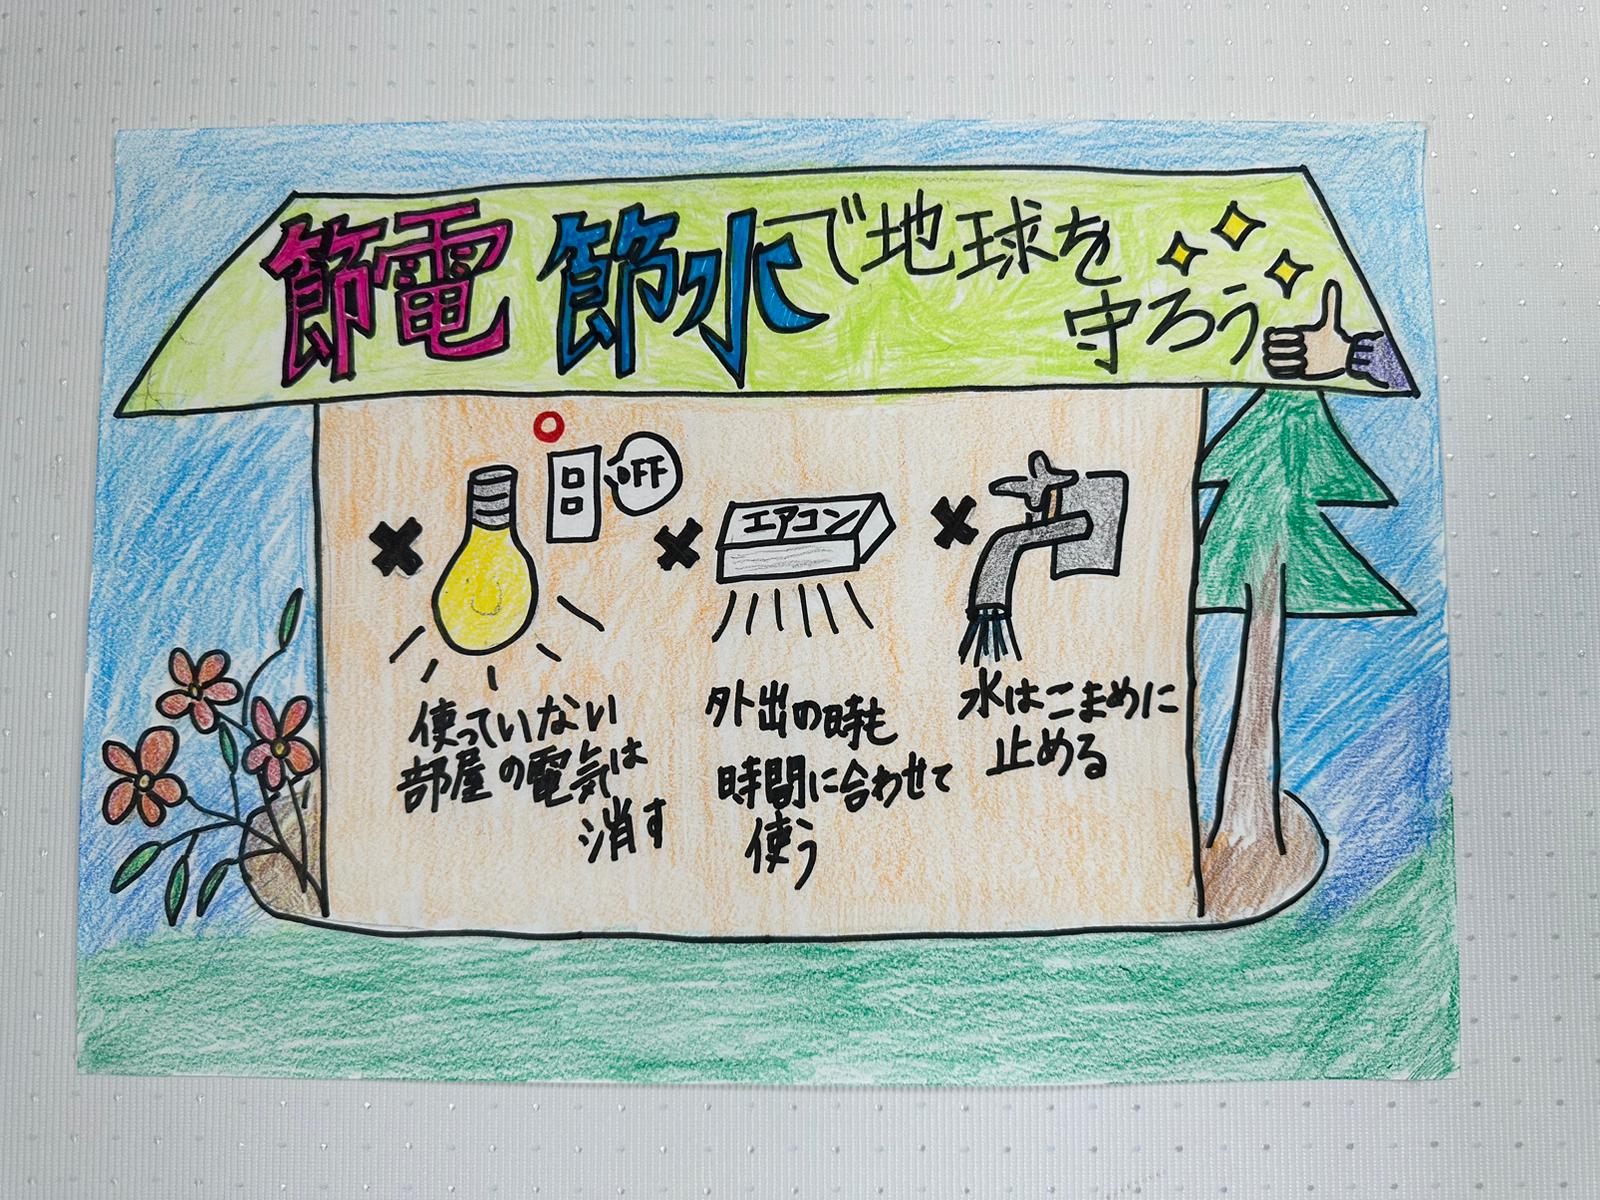 節電 節水で地球を
守ろう
OFF
エアコン
使っていない
部屋の電気は
消す
外出の時も
時間に合わせて
使う
水はこまめに
止める